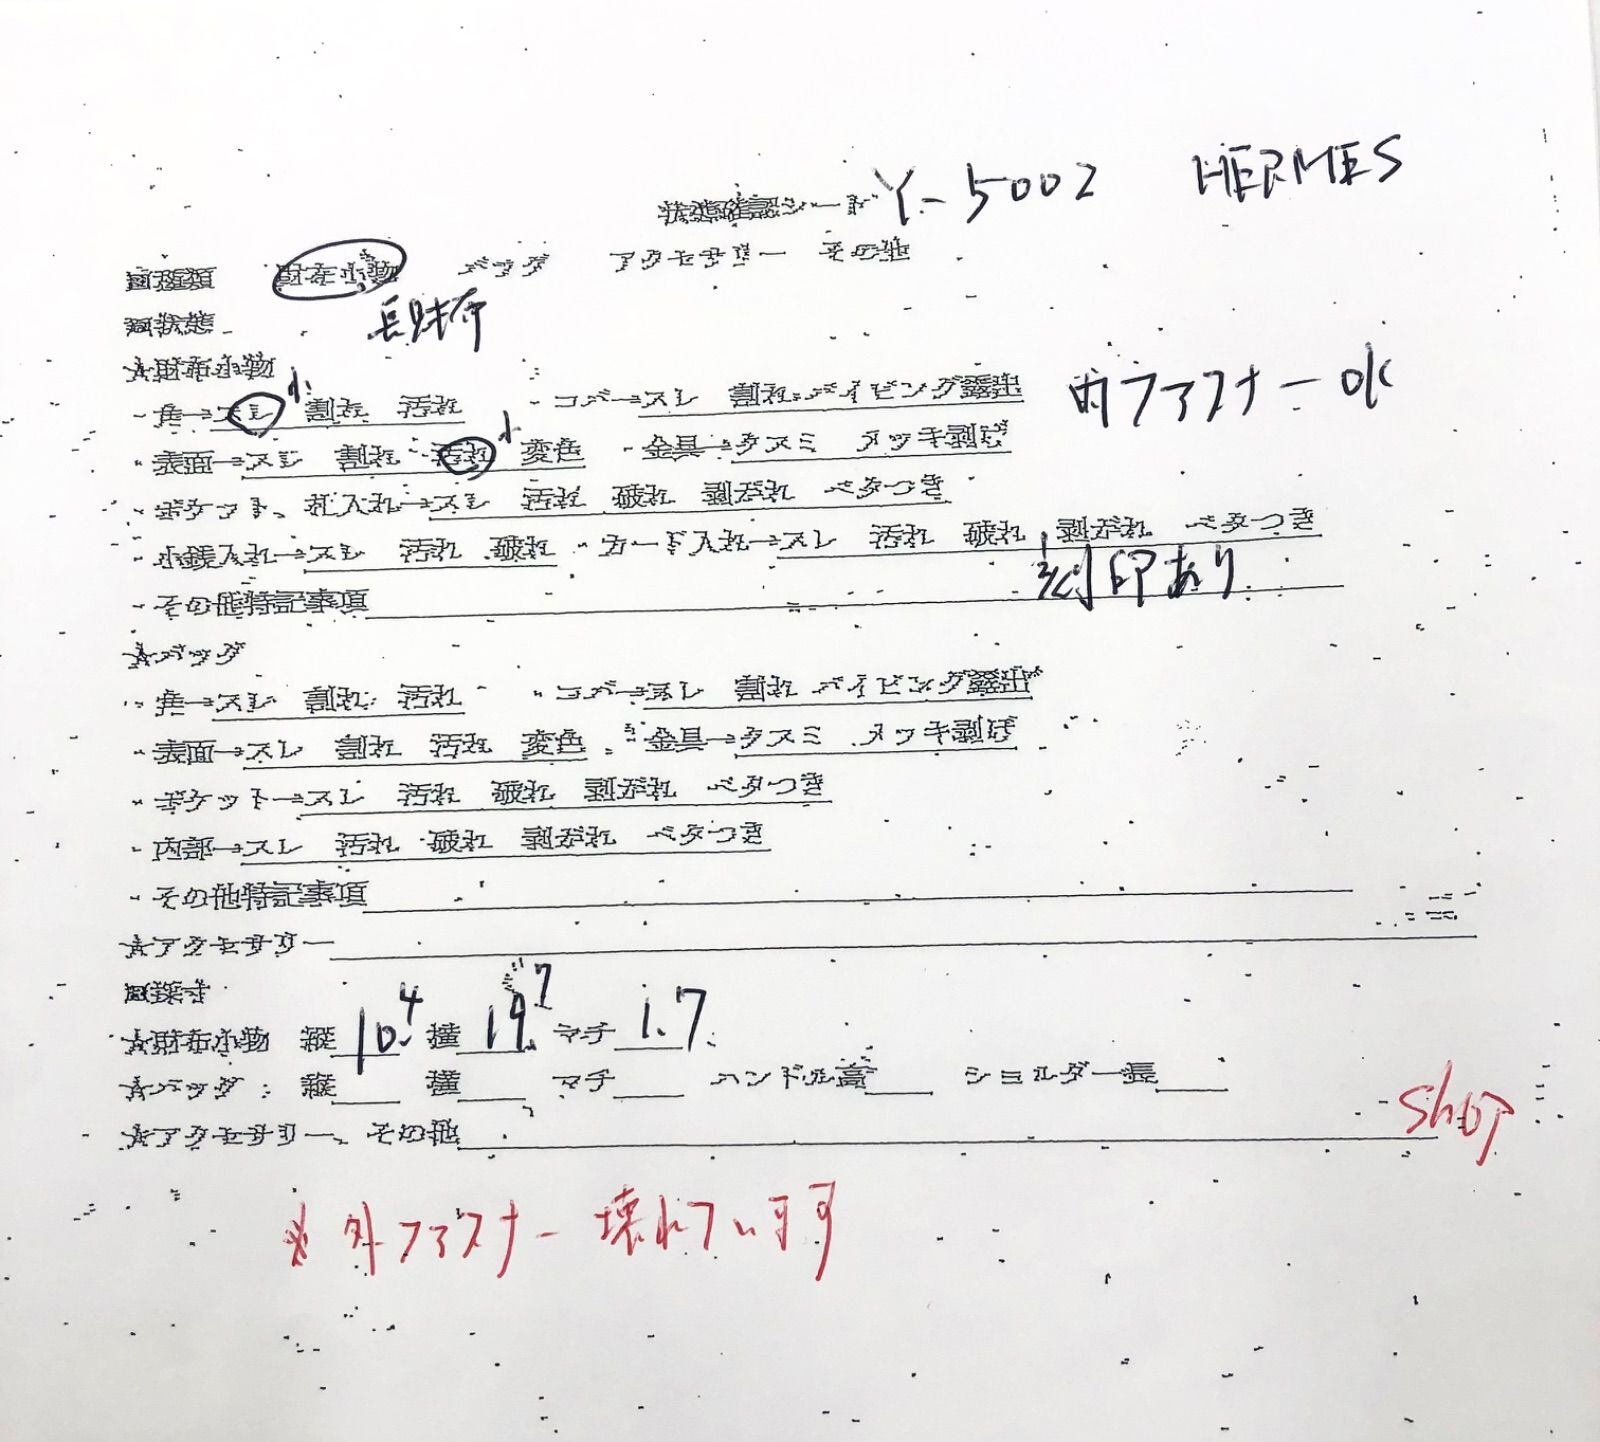 状態確認シート Y-5002 HERMES
□種類 財布小物 バッグ アクセサリー その他
□状態 長財布
☆財布小物
・角→スレ 小 割れ 汚れ ・コバ→スレ 割れ パイピング露出 内ファスナーOK
・表面→スレ 割れ 汚れ 小 変色 ・金具→クスミ メッキ剥げ
・ポケット、札入れ→スレ 汚れ 破れ 剥がれ ベタつき
・小銭入れ→スレ 汚れ 破れ ・カード入れ→スレ 汚れ 破れ 剥がれ ベタつき
・その他特記事項 刻印あり
☆バッグ
・角→スレ 割れ 汚れ ・コバ→スレ 割れ パイピング露出
・表面→スレ 割れ 汚れ 変色 ・金具→クスミ メッキ剥げ
・ポケット→スレ 汚れ 破れ 剥がれ ベタつき
・内部→スレ 汚れ 破れ 剥がれ ベタつき
・その他特記事項
☆アクセサリー
□採寸
☆財布小物 縦 10.4 横 19.7 マチ 1.7
☆バッグ 縦 横 マチ ハンドル高 ショルダー長
☆アクセサリー、その他
SHOP
※外ファスナー壊れています